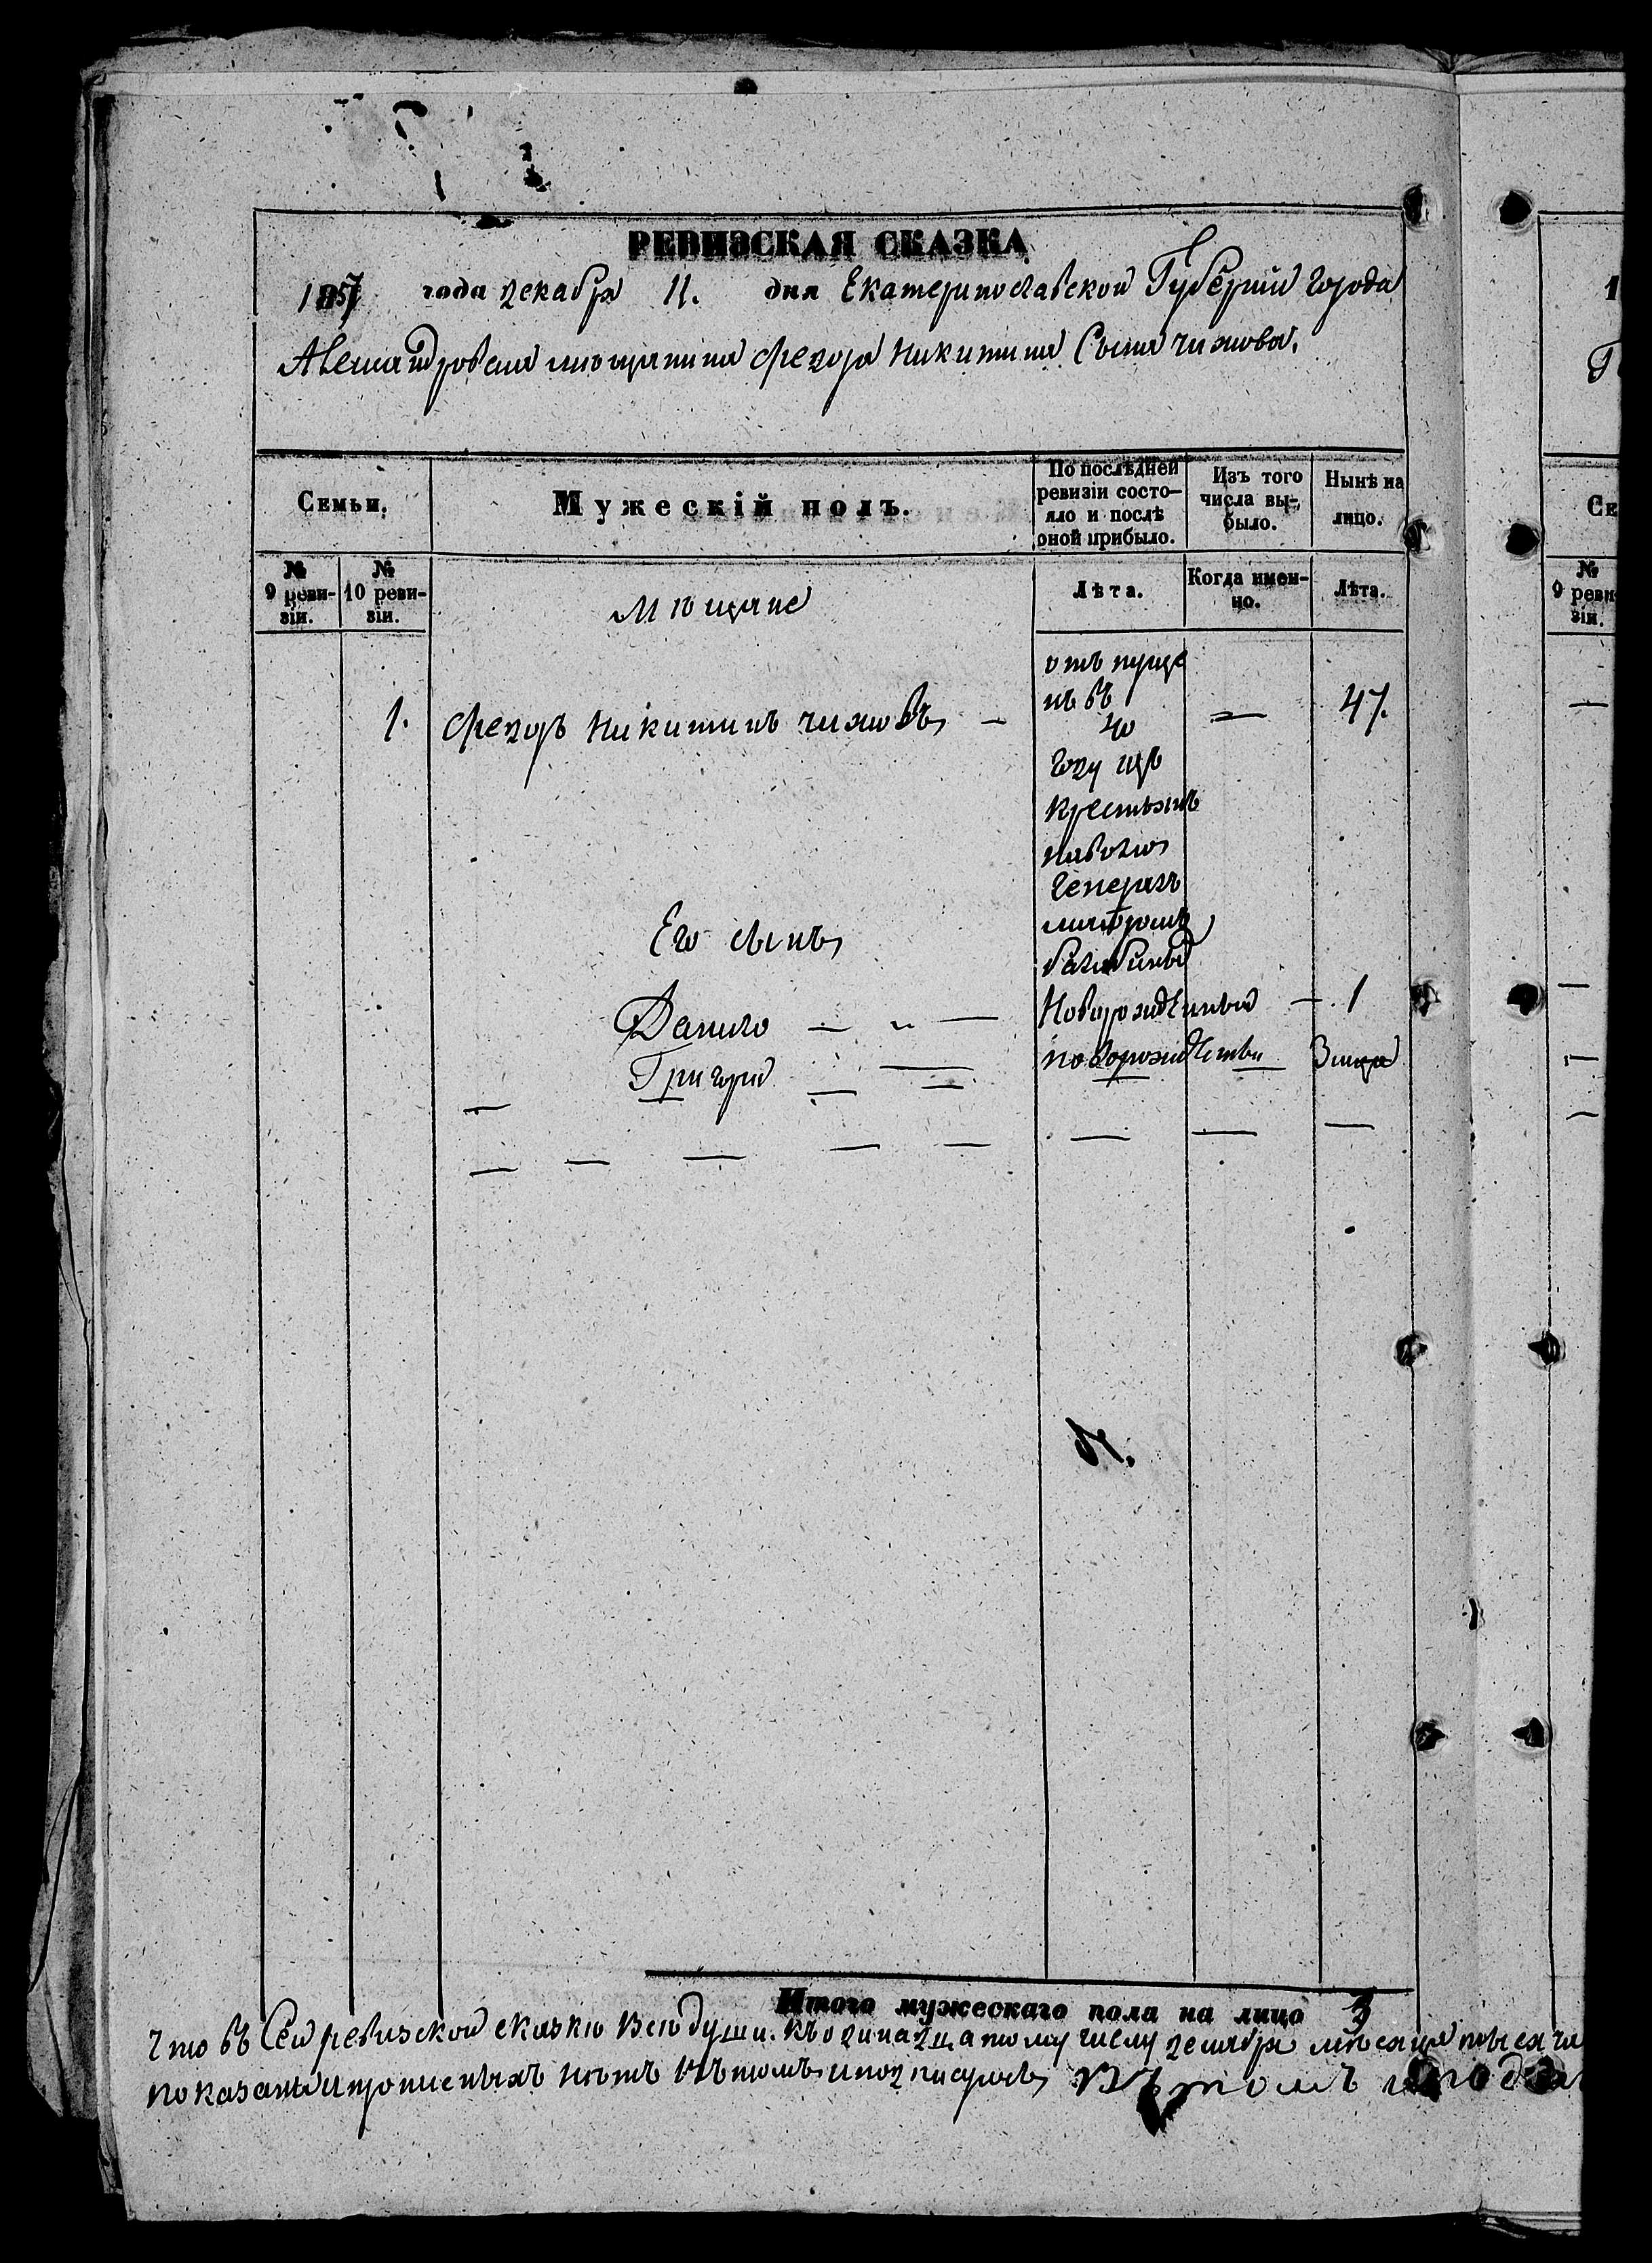 РЕВИЗСКАЯ СКАЗКА
1857 года декабря 11. дня Екатеринославской Губернии города
Александровска мещанина Федора Никитина Сына Чижова.
Семьи.
Мужескій полъ.
По послѣдней ревизіи состо-
яло и послѣ
оной прибыло.
Изъ того
числа вы-
было.
Нынѣ на
лицо.
№
9 реви-
зіи.
№
10 реви-
зіи.
Мѣщане
Лѣта.
Когда имен-
но.
Лѣта.
1. Федоръ Никитинъ Чижовъ
отпуще
нъ въ
40
году изъ
крестьянъ
наволю
Генералъ
47.
Его сынъ
Данило Новорожденный 1
Григорій новорожденны 3 мѣся
Итого мужескаго пола на лицо 3
что въ Сей ревизской сказкѣ всѣ души. къ одинадцатому числу декабря мѣсяца тысяча
показаны и прописныхъ нѣтъ въ томъ и подписуюсь Въ томъ и
1
Се
№
9 реви
зіи.